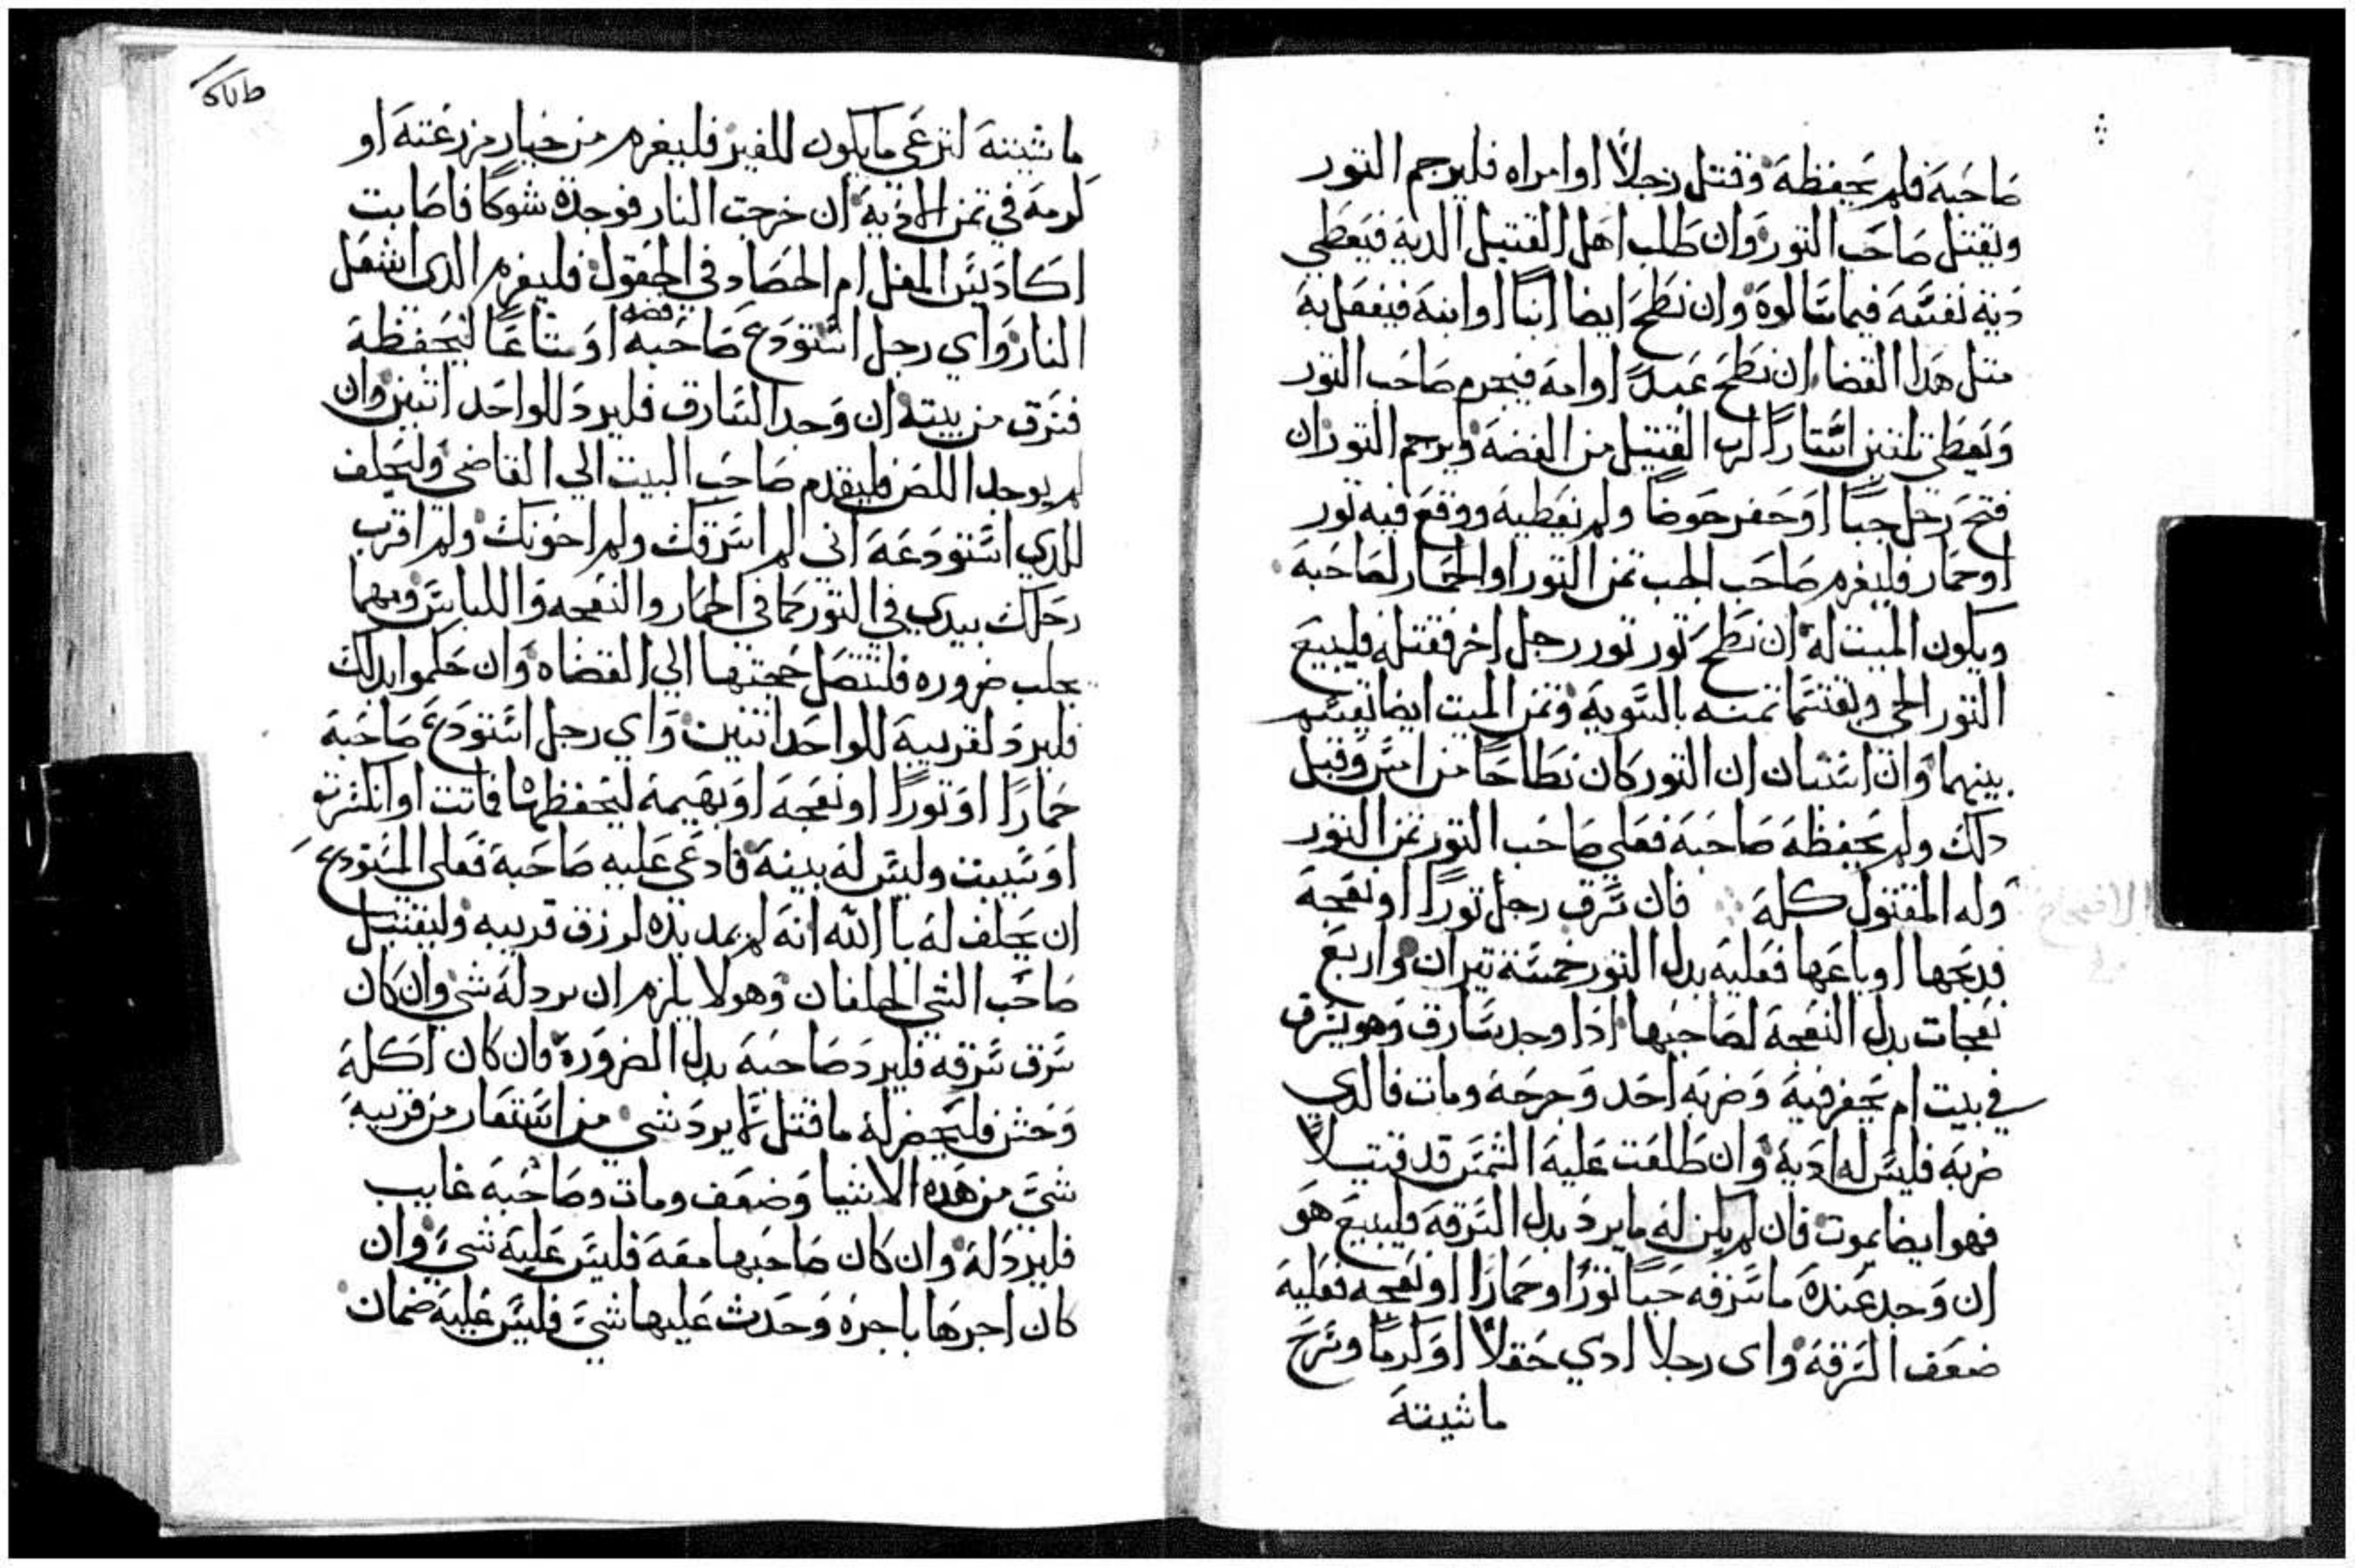 صاحبه فلم يحفظه وقتل رجلاً او امراه فليرجم التور
ويقتل صاحب التور وان طلب اهل القتيل الديه فيعطي
ديه نفسه فيما سالوه وان نطح ايضا ابنا او ابنه فيفعل به
متل هدا القضا ان نطح عبدً او امه فيجرم صاحب التور
ويعطي تلتين استارا لرب القتيل من الفضه ويرجم التور ان
فتح رجل جباً او حفر حوضاً ولم يغطيه ووقع فيه تور
او حمار فليغرم صاحب الجب تمن التور او الحمار لصاحبه
ويكون الميت له ان نطح تور تور رجل اخر فقتله فليبيع
التور الحي ويقتسما تمنه بالسويه وتمن الميت ايضا يقسم
بينهما وان استبان ان التور كان نطاحاً من امس وقبل
دلك ولم يحفظه صاحبه فعلي صاحب التور تمن التور
وله المقتول كله فان سرق رجل توراً او نعجه
فدبحها او باعها فعليه بدل التور خمسة تيران واربع
نعجات بدل النعجه لصاحبها ادا وجد سارق وهو يسرق
في بيت ام يحفر فيه وضربه احد وجرحه ومات فالدي
ضربه فليس له ديه وان طلعت عليه الشمس قد قتيلاً
فهو ايضا يموت فان لم يكن له ما يرد بدل السرقه فليبيع هو
ان وجد عنده ما سرقه حيا توراً او حماراً او نعجه فعليه
ضعف السرقه واى رجلا ادي حقلاً او كرماً وسرح
ماشيته
ماشيته لترعى ما يكون للغير فليغرم من خيار مزرعته او
كرمه في تمن الاديه ان خرجت النار فوجدة شوكاً فاصابت
اكاديس المغل ام الحصاد في الحقول فليغرم الدى اشعل
النار واي رجل استودع صاحبه فضه او متاعاً ليحفظه
فسرق من بيته ان وجد السارق فليرد للواحد اتنين وان
لم يوجد اللص فليقدم صاحب البيت الي القاضي وليحلف
للدي استودعه اني لم اسرقك ولم اخونك ولم اقرب
رحلك بيدي في التور كما في الحمار والنعجه واللباس ومهما
يجلب ضروره فلتتصل حجتهما الي القضاه وان حكموا بدلك
فليرد لقريبه للواحد اتنين واي رجل استودع صاحبه
حماراً او توراً او نعجه او بهيمه ليحفظها فماتت او انكسرت
او سبيت وليس له بينه فادعي عليه صاحبه فعلي المستودع
ان يحلف له بالله انه لم يمد يده لرزق قريبه وليقتبل
صاحب الشي الحلفان وهو لا يلزم ان يرد له شي وان كان
سرق سرقه فليرد صاحبه بدل الضروره فان كان اكله
وحش فليحضر له ما قتل لما يرد شي من استعار من قريبه
شيّ من هده الاشيا وضعف ومات وصاحبه غايب
فليرد له وان كان صاحبها معه فليس عليه شيّ وان
كان اجرها باجره وحدث عليها شيّ فليس عليه ضمان